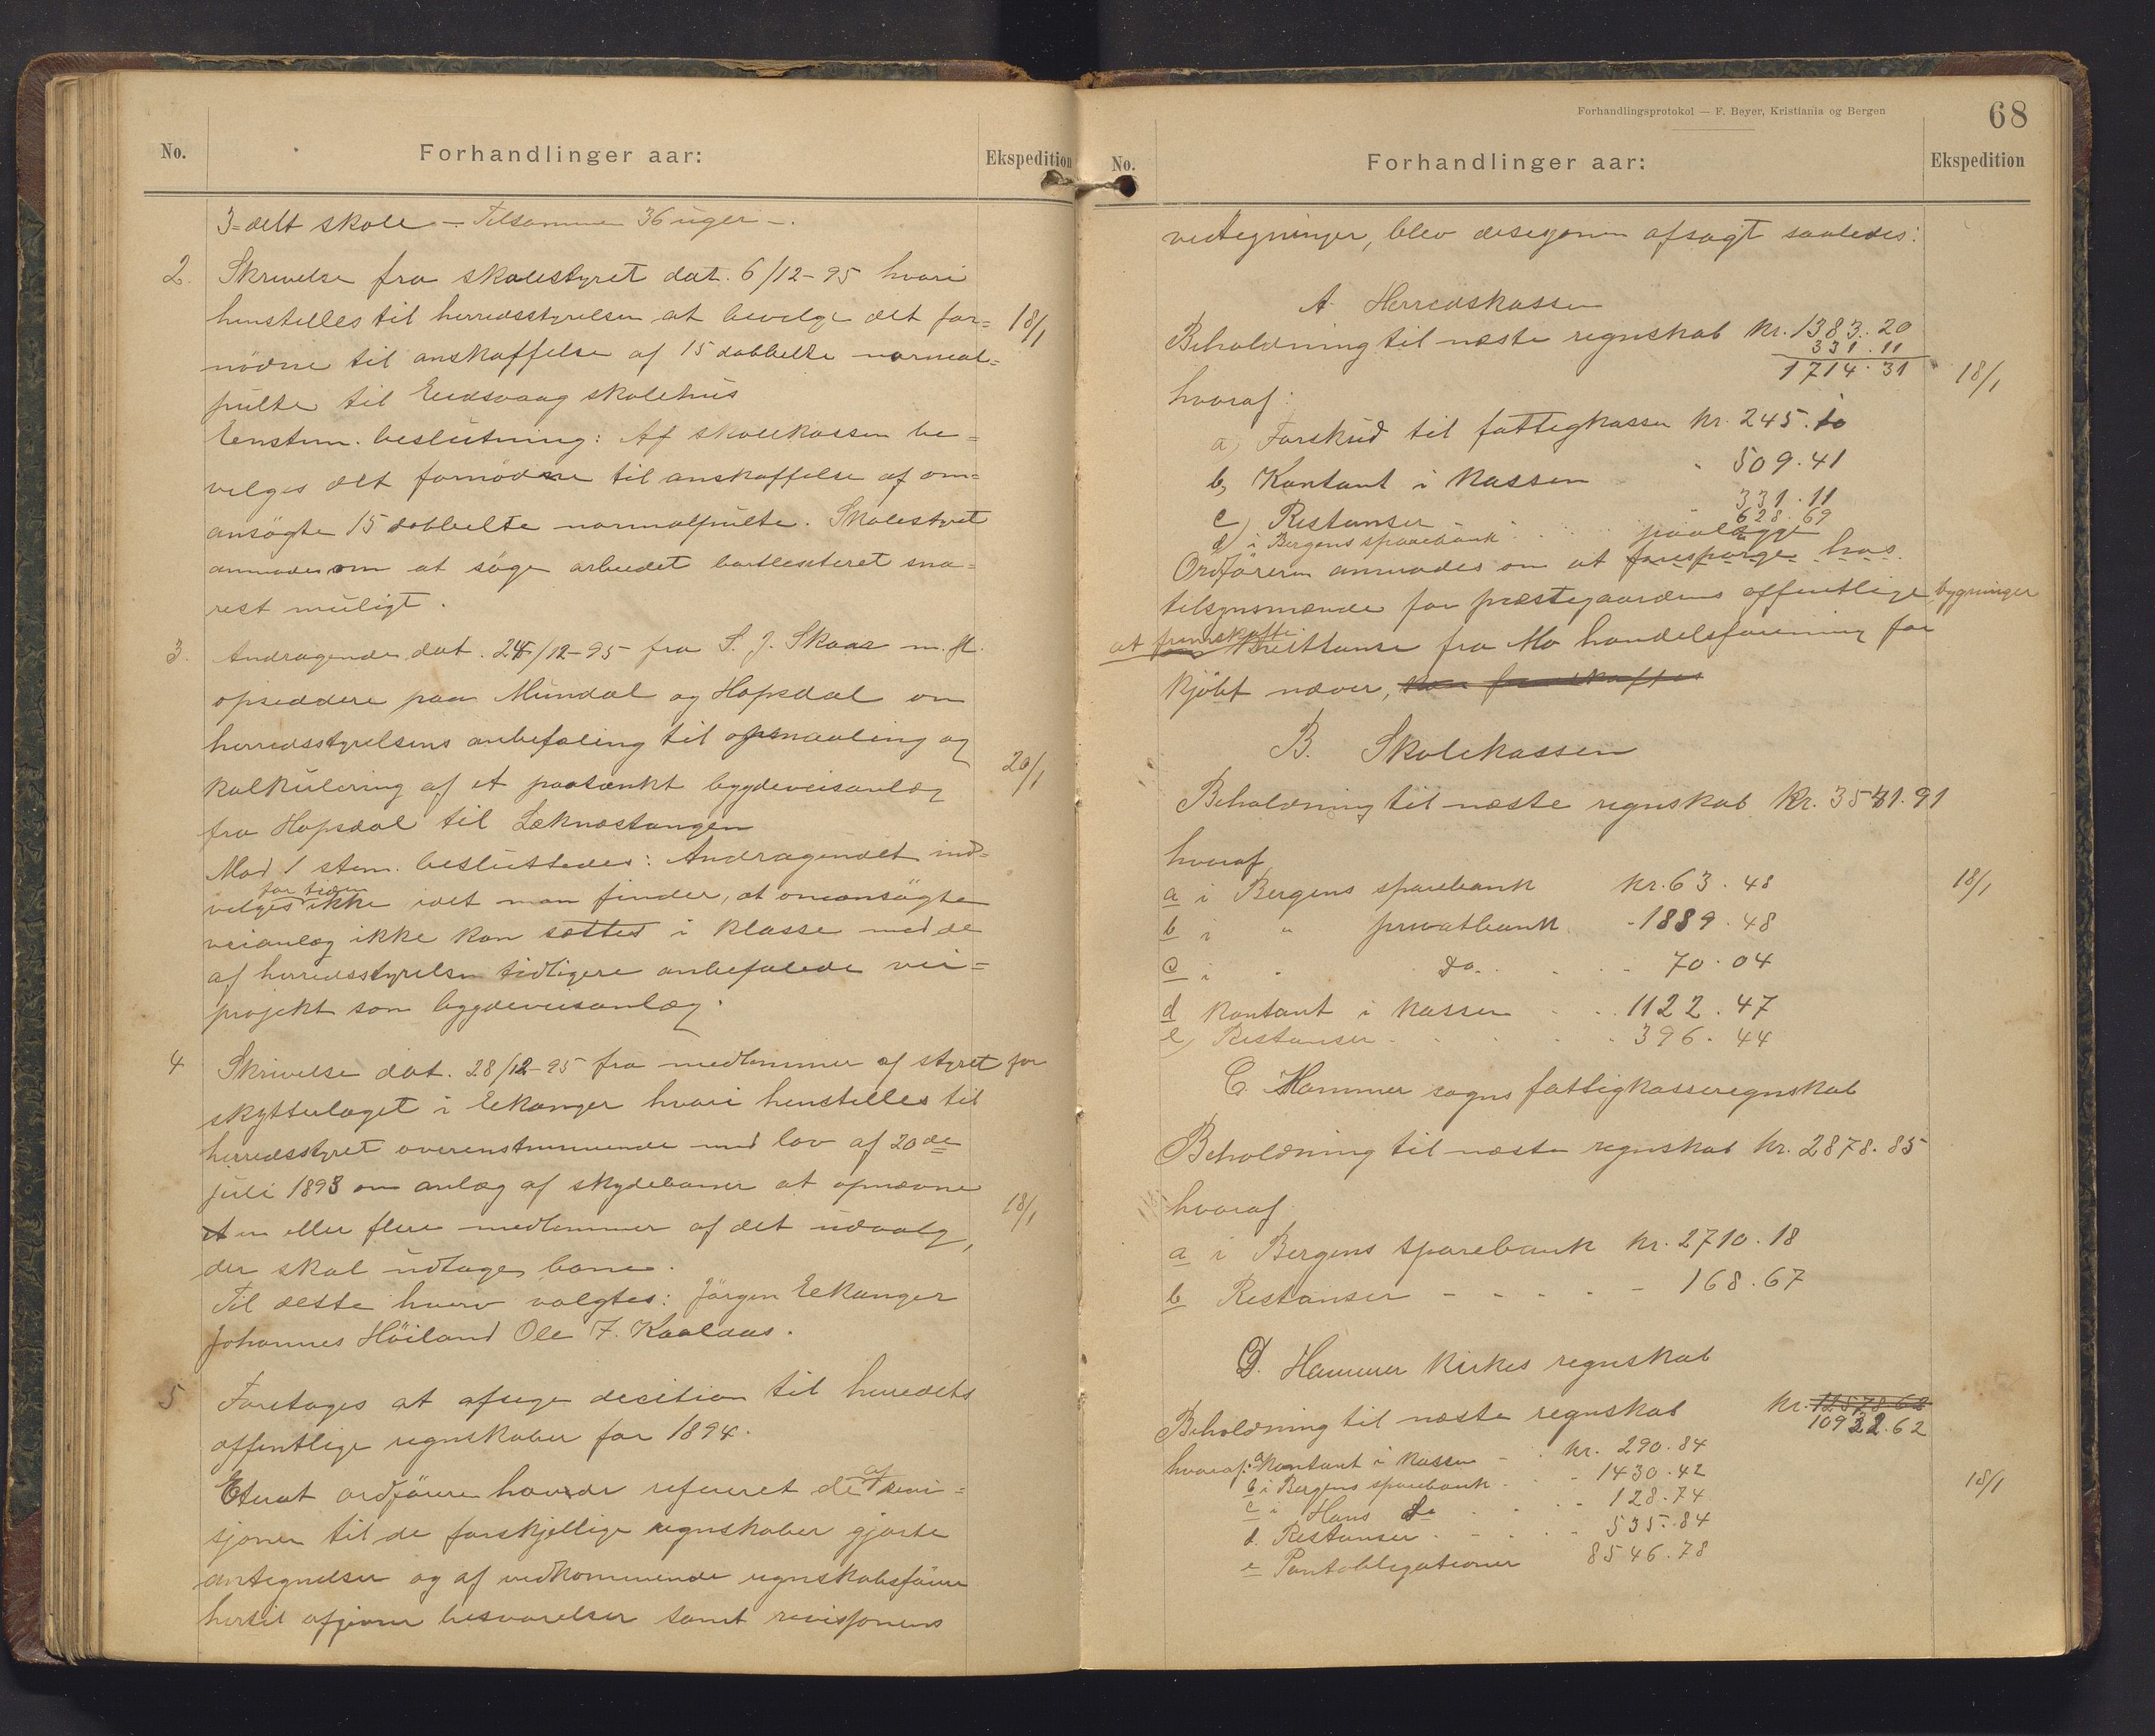 No.
Forhandlinger aar:
Ekspedition
3-delt skole - Tilsammen 36 uger -.
2. Skrivelse fra skolestyret dat. 6/12-95 hvori
henstilles til herredsstyrelsen at bevilge det for=
nödne til anskaffelse af 15 dobbelte normal= 18/1
pulte til Eidsvaag skolehus
Eenstem. beslutning: Af skolekassen be=
vilges det fornödne til anskaffelse af om=
ansögte 15 dobbelte normalpulte. Skolestyret
anmodes om at söge arbeidet bortlisiteret sna=
rest muligt.
3. Andragende dat. 24/12-95 fra S. J. Skaar m. fl.
opsiddere paa Mundal og Hopsdal om
herredsstyrelsens anbefaling til opmaaling og
kalkulering af et paatænkt bygdeveisanlæg 20/1
fra Hopsdal til Læknæstangen
Mod 1 stem. besluttedes: Andragendet ind=
for tiden
vilges ikke idet man finder, at omansögte
veianlæg ikke kan sættes i klasse med de
af herredsstyrelsen tidligere anbefalede vei=
projekt som bygdeveisanlæg.
4 Skrivelse dat. 28/12-95 fra medlemmer af styret for
skytterlaget i Eekanger hvori henstilles til
herredsstyret overenstemmende med lov af 20de
juli 1893 om anlæg af skydebaner at opnævne
en eller flere medlemmer af det udvalg, 18/1
der skal udtage bane.
Til dette hverv valgtes: Jörgen Eekanger
Johannes Höiland Ole F. Kaaldaas.
5 Foretages at afsige decition til heredets
offentlige regnskaber for 1894.
Efterat ordförer havde refereret de af revi=
sjonen til de forskjellige regnskaber gjorte
antegnelser og af vedkommende regnskabsförer
hertil afgivne besvarelser samt revisjonens
Forhandlingsprotokol — F. Beyer, Kristiania og Bergen
68
No.
Forhandlinger aar:
Ekspedition
vedtegninger, blev desisjonen afsagt saaledes:
A. Herredskassen
Beholdning til næste regnskab Kr. 1383.20
331.11
1714.31 18/1
hvoraf:
a) Forskud til fattigkassen kr. 245.10
b, Kontant i kassen " 509.41
c) Restanser 331.11
d) i Bergens sparebank 628.69
paalægge
Ordföreren anmodes om at forespörge hos
tilsynsmænde for præstegaardens offentlige bygninger
at fremskaffe
kvittanse fra Mo handelsforening for
kjöbt næver,
B. Skolekassen
Beholdning til næste regnskab Kr. 3541.91
hvoraf
a i Bergens sparebank kr. 63.48 18/1
b i " privatbank - 1889.48
c i " do. - 70.04
d kontant i kassen 1122.47
e) Restanser 396.44
C. Hammer sogns fattigkasseregnskab
Beholdning til næste regnskab kr. 2878.85
hvoraf
a i Bergens sparebank kr. 2710.18
b Restanser - 168.67
D. Hammer kirkes regnskab
Beholdning til næste regnskab kr. 12578.62
10932.62
hvoraf: a Kontant i kassen - kr. 290.84
b i Bergens sparebank - 1430.42
c i Hans do - 128.74 18/1
d. Restanser - 535.84
e Pantobligationer 8546.78